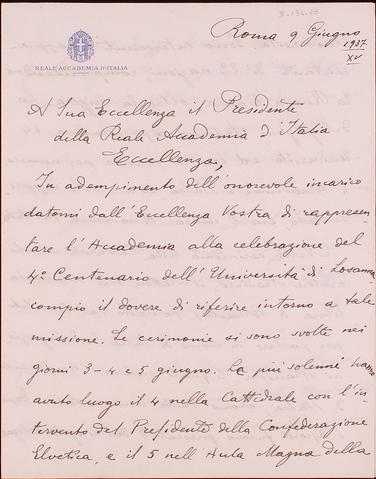 REALE ACCADEMIA D'ITALIA
Roma 9 Giugno
1937
XV
A Sua Eccellenza il Presidente
della Reale Accademia d'Italia
Eccellenza,
In adempimento dell'onorevole incarico
datomi dall'Eccellenza Vostra di rappresen
tare l'Accademia alla celebrazione del
4º Centenario dell'Università di Losanna
compio il dovere di riferire intorno a tale
missione. Le cerimonie si sono svolte nei
giorni 3-4 e 5 giugno. Le più solenni hanno
avuto luogo il 4 nella Cattedrale con l'in
tervento del Presidente della Confederazione
Elvetica, e il 5 nell'Aula Magna della